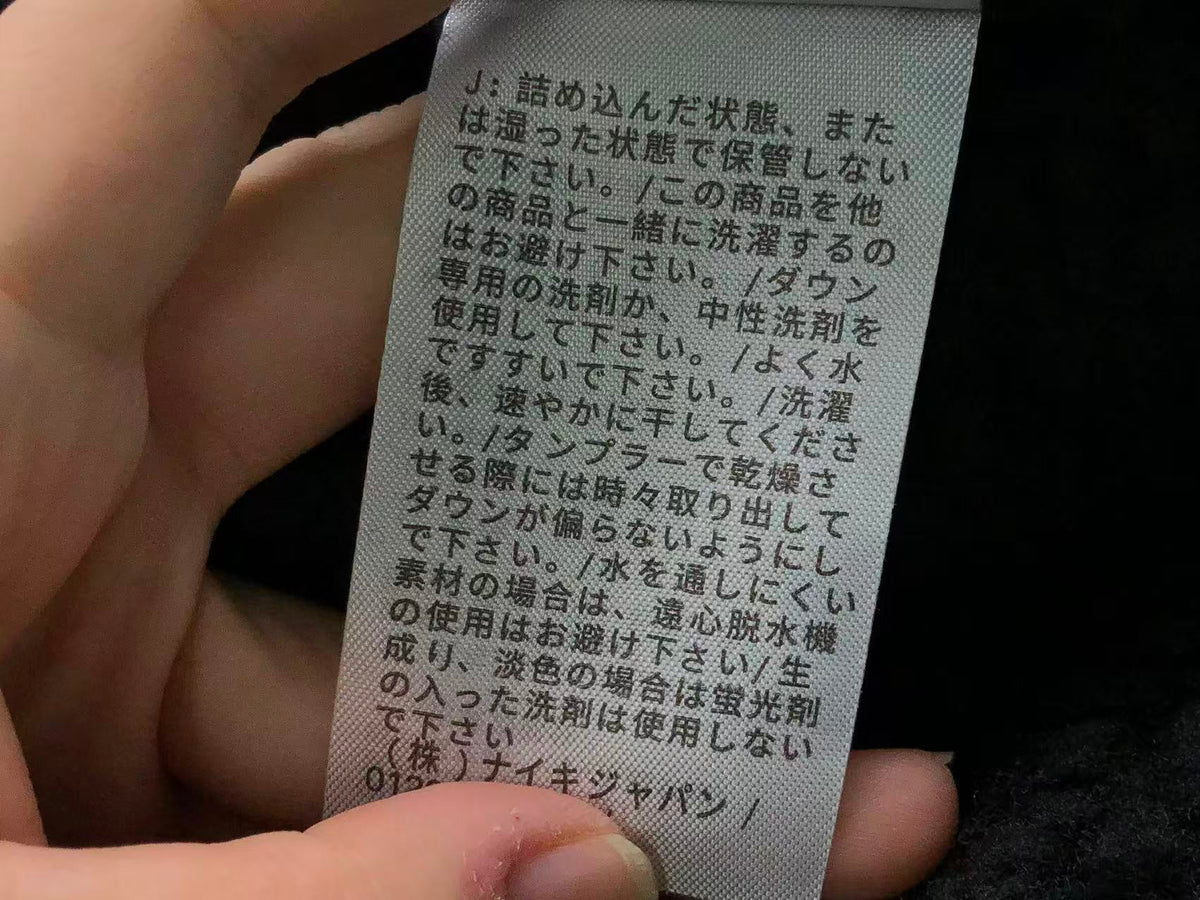 J: 詰め込んだ状態、また
は湿った状態で保管しない
で下さい。/この商品を他
の商品と一緒に洗濯するの
はお避け下さい。/ダウン
専用の洗剤か、中性洗剤を
使用して下さい。/よく水
ですすいで下さい。/洗濯
後、速やかに干してくださ
い。/タンプラーで乾燥さ
せる際には時々取り出して
ダウンが偏らないようにし
で下さい。/水を通しにくい
素材の場合は、遠心脱水機
の使用はお避け下さい/生
成り、淡色の場合は蛍光剤
の入った洗剤は使用しない
で下さい
(株)ナイキジャパン/